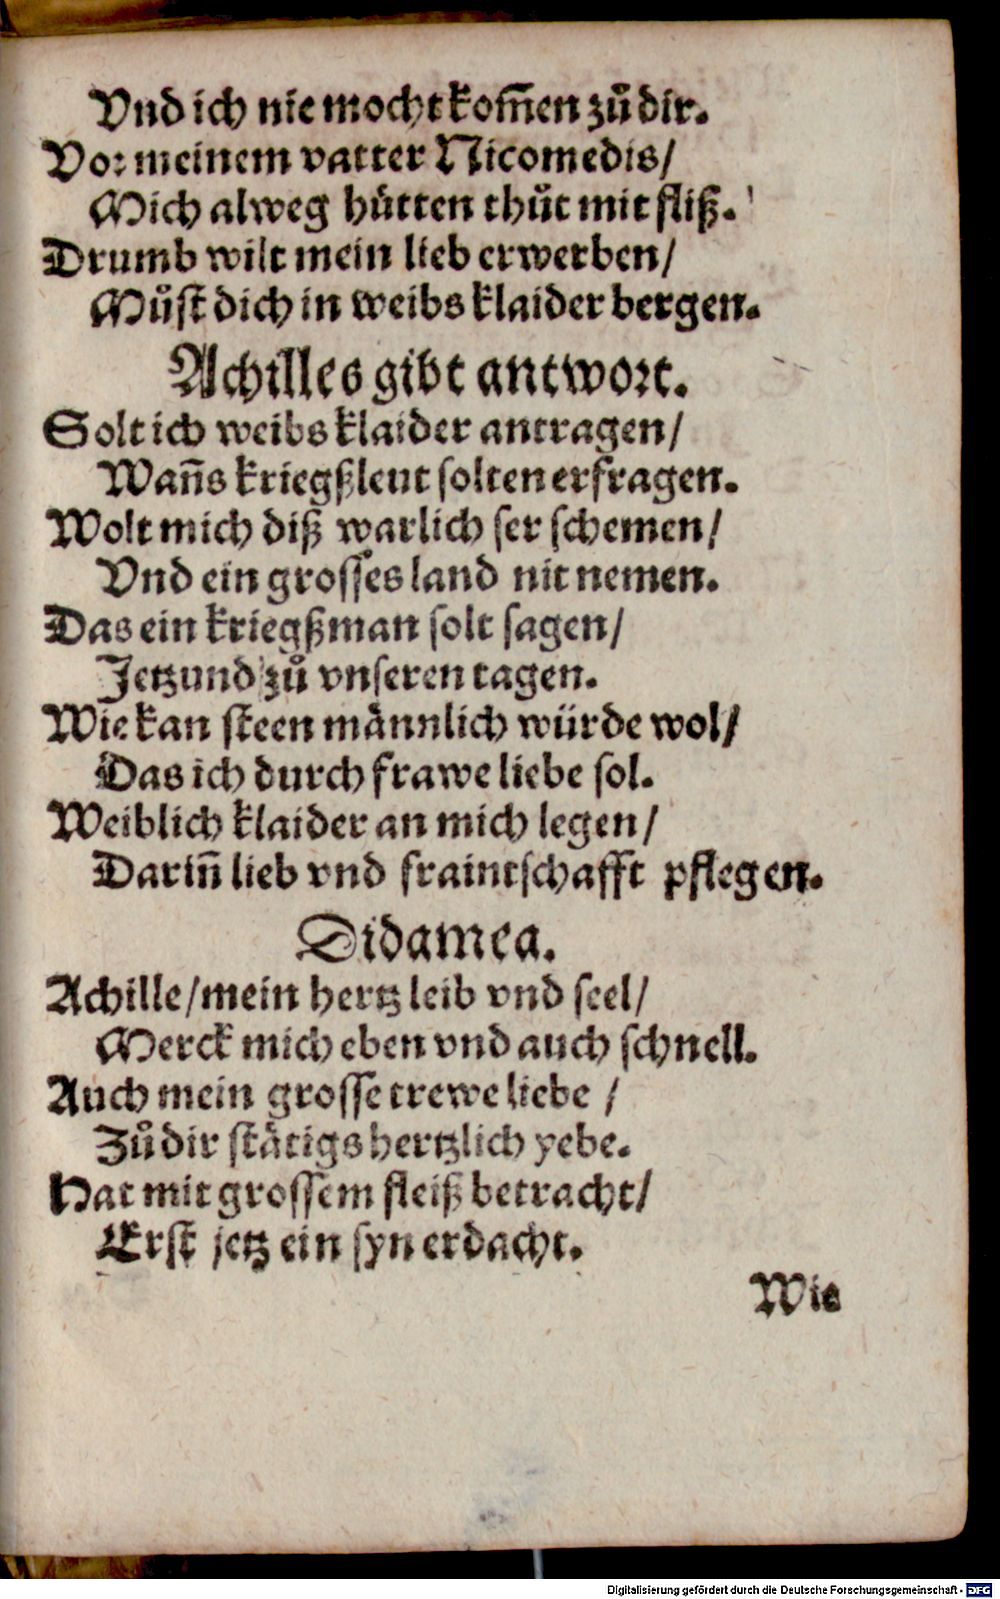 Vnd ich nie mocht kom̃en zů dir.
Vor meinem vatter Nicomedis/
Mich alweg hütten thůt mit fliß.
Drumb wilt mein lieb erwerben/
Můst dich in weibs klaider bergen.
Achilles gibt antwort.
Solt ich weibs klaider antragen/
Wañs kriegßleut solten erfragen.
Wolt mich diß warlich ser schemen/
Vnd ein grosses land nit nemen.
Das ein kriegßman solt sagen/
Jetzund zů vnseren tagen.
Wie kan steen männlich würde wol/
Das ich durch frawe liebe sol.
Weiblich klaider an mich legen/
Dariñ lieb vnd fraintschafft pflegen.
Didamea.
Achille/mein hertz leib vnd seel/
Merck mich eben vnd auch schnell.
Auch mein grosse trewe liebe /
Zů dir stätigs hertzlich yebe.
Hat mit grossem fleiß betracht/
Erst jetz ein syn erdacht.
Wie
Digitalisierung gefördert durch die Deutsche Forschungsgemeinschaft - DFG